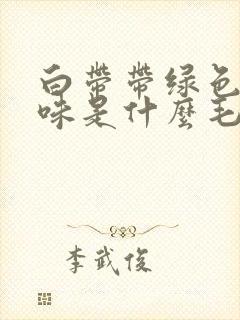 白帶帶绿色
味是什麼毛
李武俊